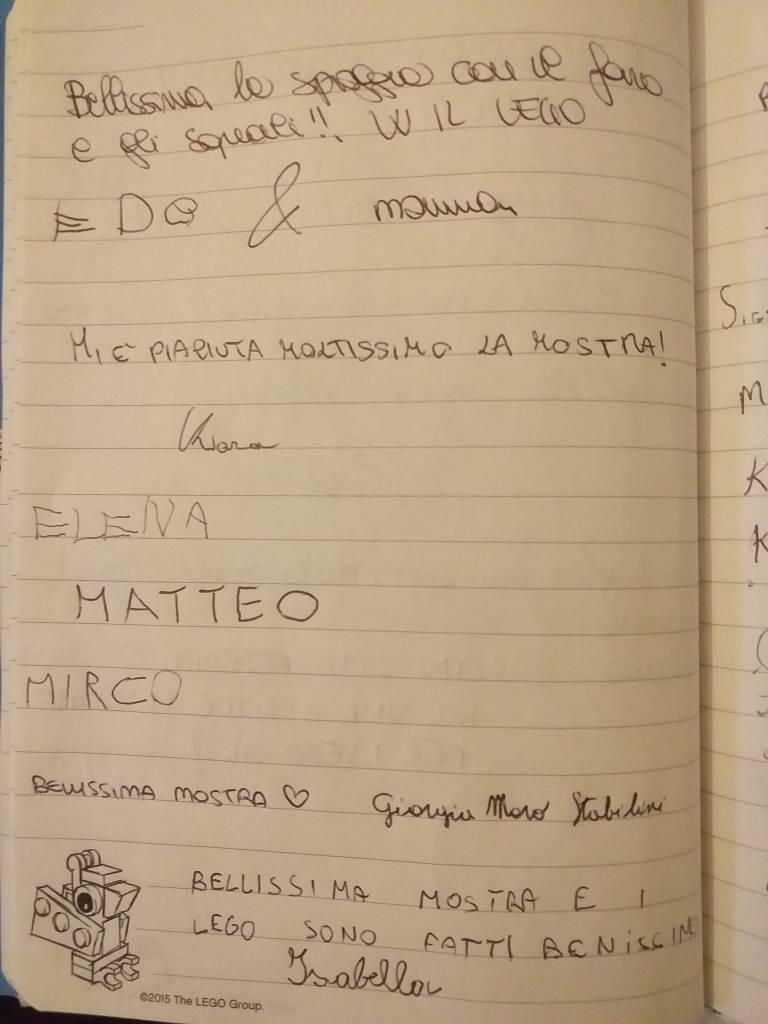 Bellissima la spiaggia con il faro
e gli squali!! W IL LEGO
EDO & mamma
MI È PIACIUTA MOLTISSIMO LA MOSTRA!
Chiara
ELENA
MATTEO
MIRCO
BELLISSIMA MOSTRA ♡ Giorgia Moro Stabilini
BELLISSIMA MOSTRA E I
LEGO SONO FATTI BENISSIMO
Isabella
©2015 The LEGO Group.